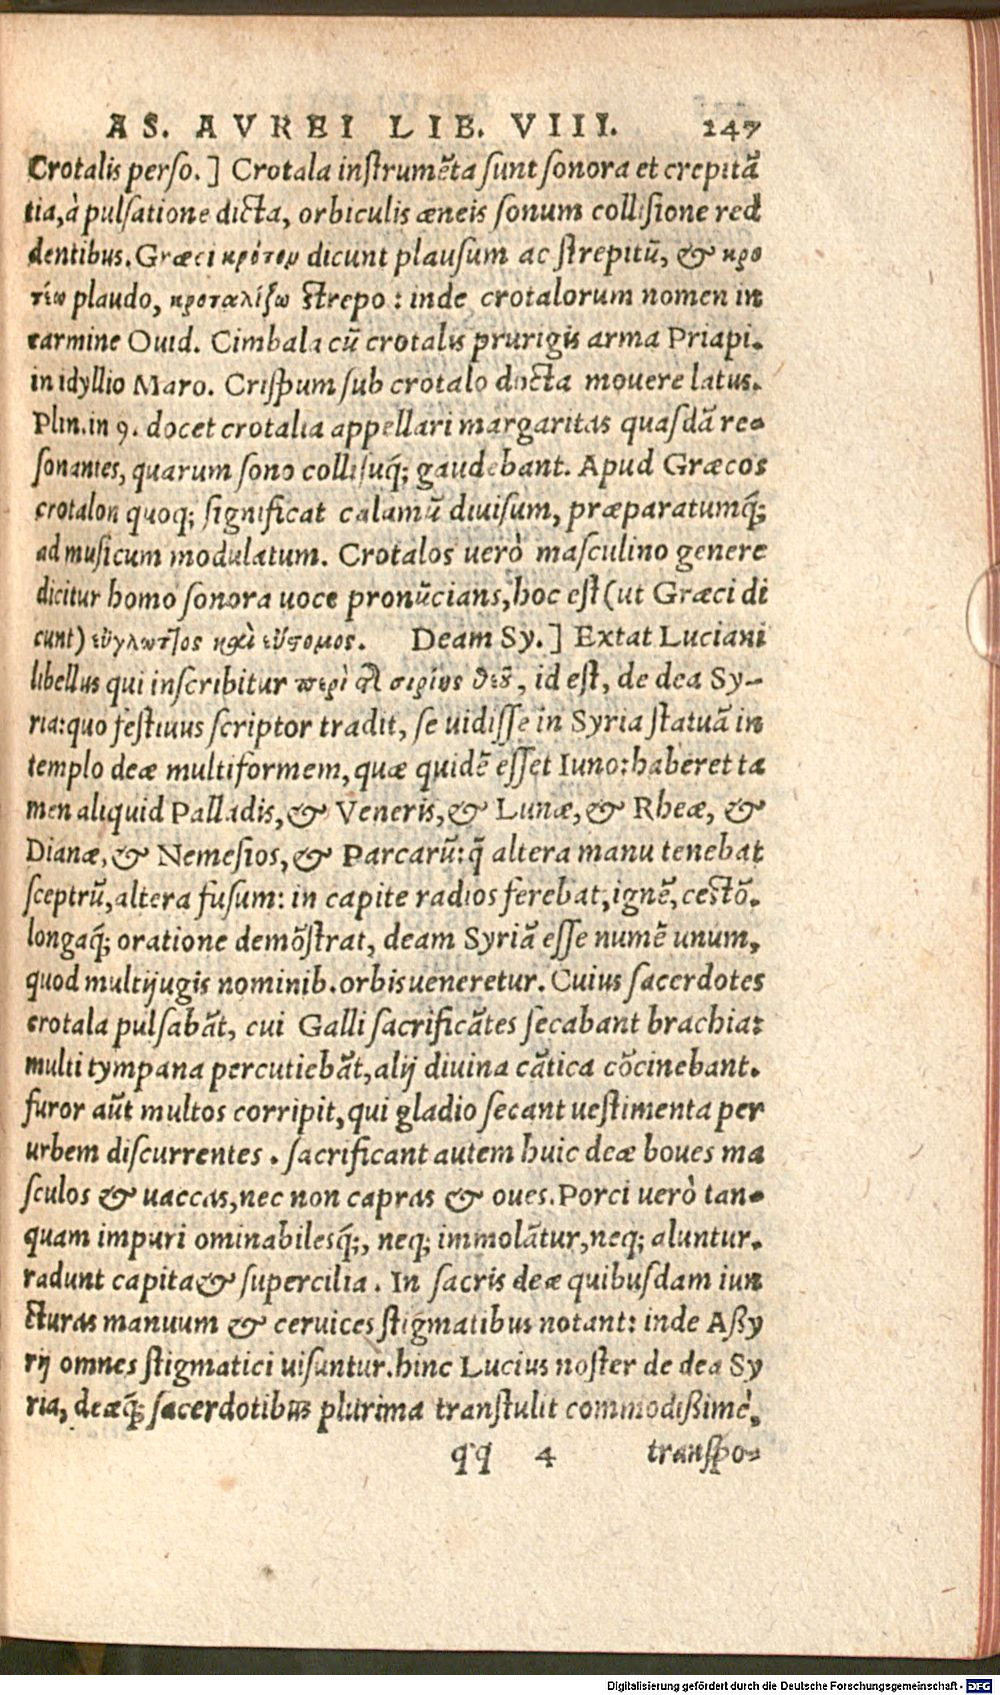 AS. AVREI LIB. VIII. 247
Crotalis perso.] Crotala instrumẽta sunt sonora et crepitã
tia, à pulsatione dicta, orbiculis æneis sonum collisione red
dentibus. Græci κρότον dicunt plausum ac strepitũ, & κρο
τέω plaudo, κροταλίζω strepo: inde crotalorum nomen in
carmine Ouid. Cimbala cũ crotalis prurigis arma Priapi.
in idyllio Maro. Crispum sub crotalo docta mouere latus.
Plin. in 9. docet crotalia appellari margaritas quasdã re-
sonantes, quarum sono collisuq́; gaudebant. Apud Græcos
crotalon quoq; significat calamũ diuisum, præparatumq́;
ad musicum modulatum. Crotalos uerò masculino genere
dicitur homo sonora uoce pronũcians, hoc est (ut Græci di
cunt) εὔγλωττος καὶ εὔστομος. Deam Sy.] Extat Luciani
libellus qui inscribitur περὶ τῆς συρίης θεοῦ, id est, de dea Sy-
ria: quo festiuus scriptor tradit, se uidisse in Syria statuã in
templo deæ multiformem, quæ quidẽ esset Iuno: haberet ta
men aliquid Palladis, & Veneris, & Lunæ, & Rheæ, &
Dianæ, & Nemesios, & Parcarũ: q̃ altera manu tenebat
sceptrũ, altera fusum: in capite radios ferebat, ignẽ, cestõ.
longaq́; oratione demõstrat, deam Syriã esse numẽ unum,
quod multijugis nominib. orbis ueneretur. Cuius sacerdotes
crotala pulsabãt, cui Galli sacrificãtes secabant brachia:
multi tympana percutiebãt, alij diuina cãtica cõcinebant.
furor aũt multos corripit, qui gladio secant uestimenta per
urbem discurrentes. sacrificant autem huic deæ boues ma
sculos & uaccas, nec non capras & oues. Porci uerò tan-
quam impuri ominabilesq́;, neq; immolãtur, neq; aluntur.
radunt capita & supercilia. In sacris deæ quibusdam iun
cturas manuum & ceruices stigmatibus notant: inde Aßy
rij omnes stigmatici uisuntur. hinc Lucius noster de dea Sy
ria, deæq́; sacerdotibus plurima transtulit commodißimè,
qq 4 transpo-
Digitalisierung gefördert durch die Deutsche Forschungsgemeinschaft - DFG